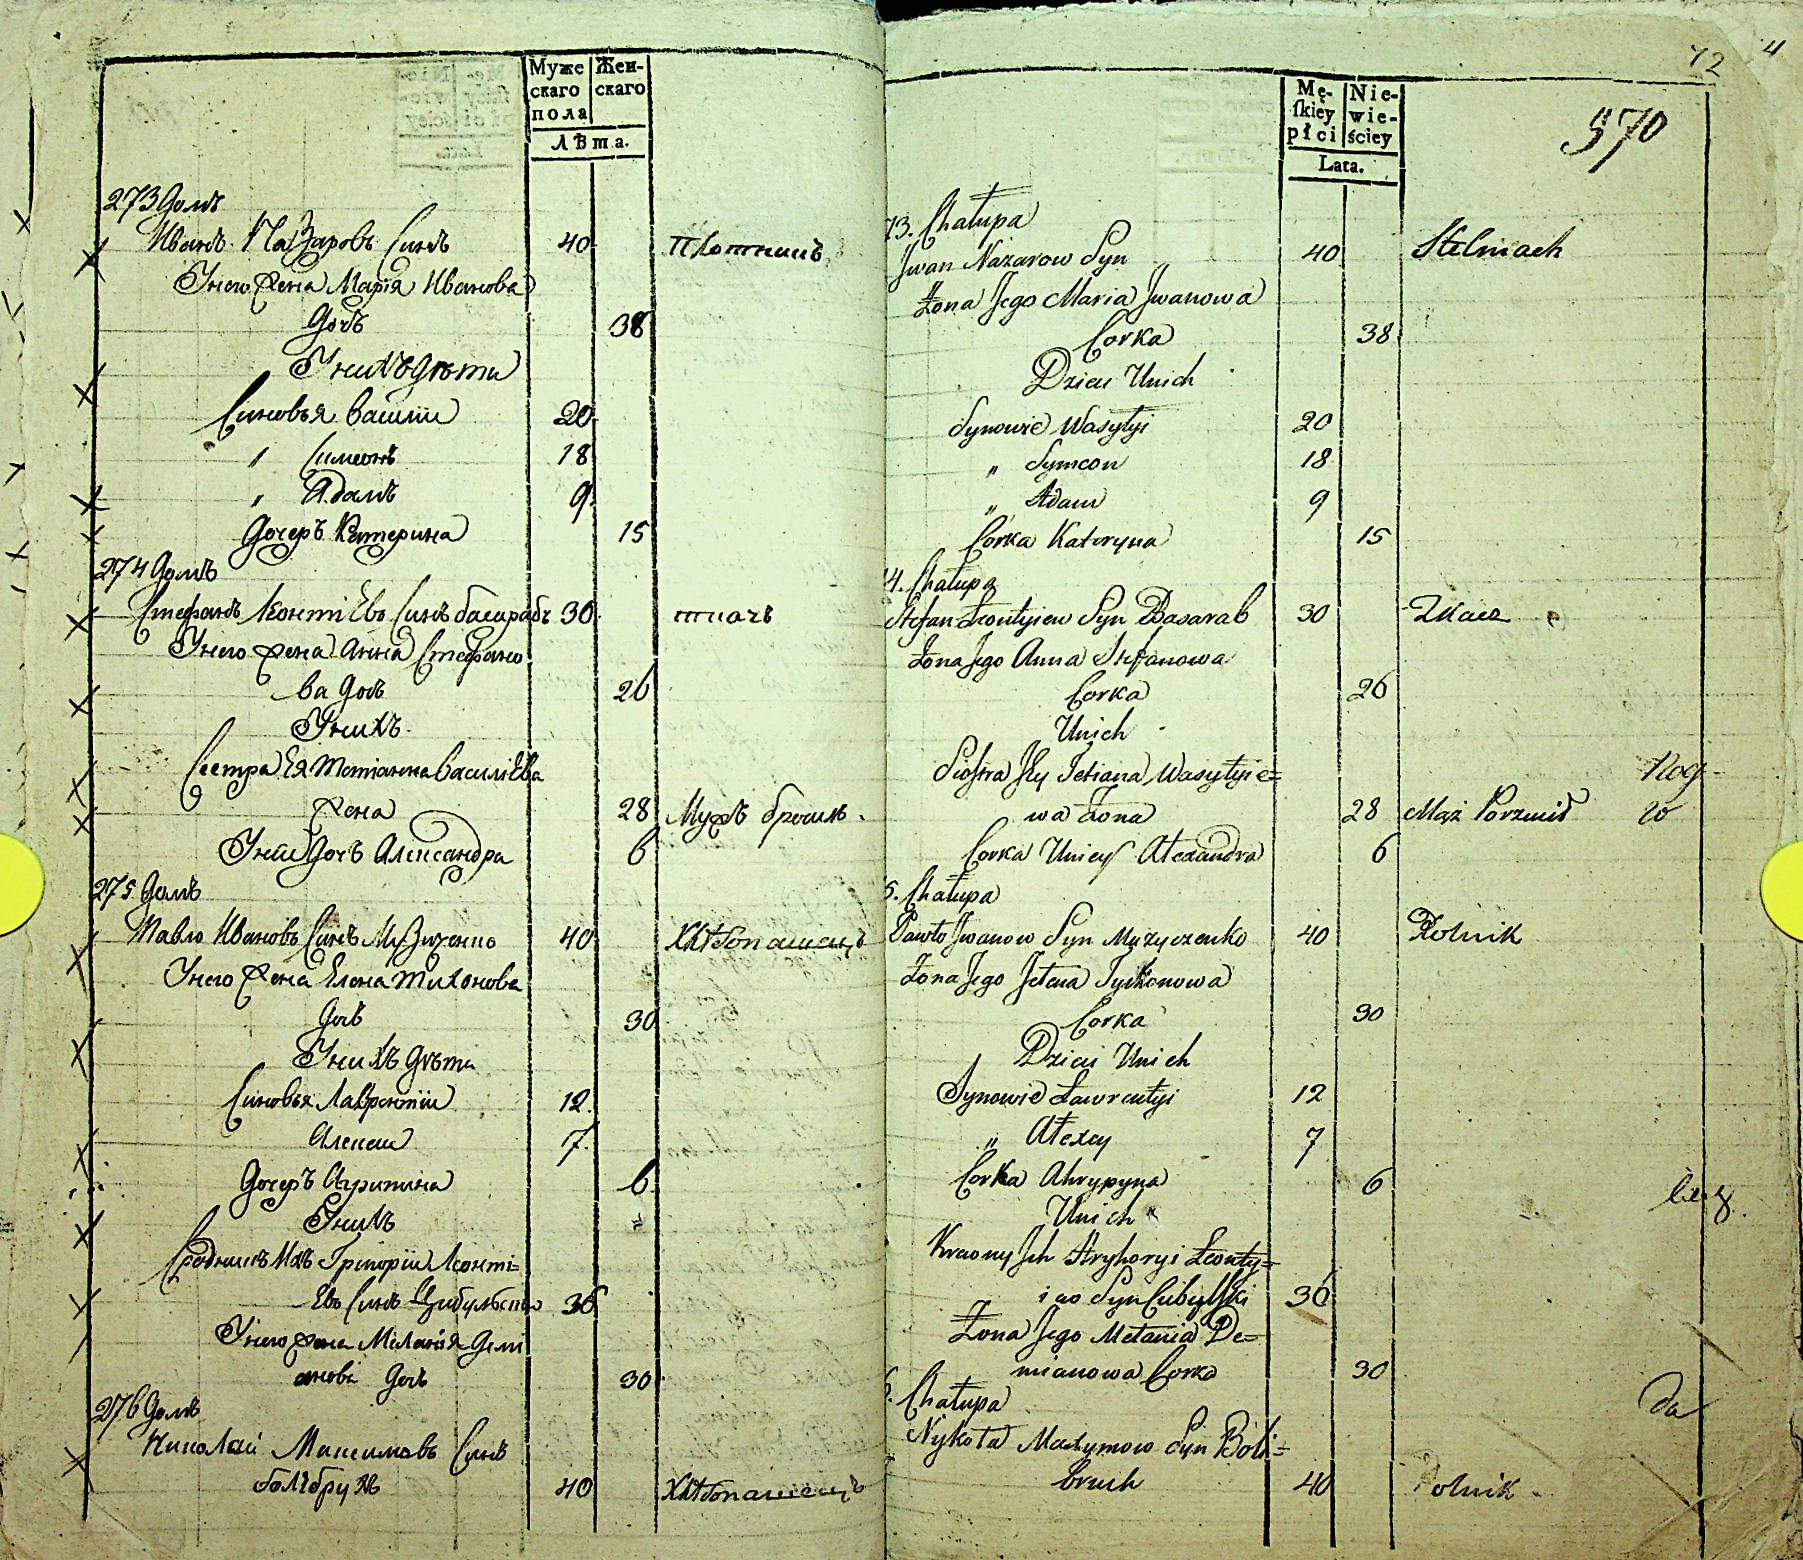 Муже
скаго
пола
Жен-
скаго
Лѣта.
273 Домъ
Иванъ Назаровъ Синъ 40 Плотникъ
Унего Жена Марія Иванова
Дочь 38
Унихъ дѣти
Синовья Василій 20
" Симеонъ 18
" Адамъ 9
Дочеръ Катерина 15
274 Домъ
Стефанъ Леонтіевъ Синъ басарабъ 30 ткачъ
Унего Жена Анна Стефано
ва Дочь 26
Унихъ
Сестра Ея Тотіанна василіева
Жена 28 Мужъ бросилъ.
Уней Дочъ Александра 6
275 Домъ
Павло Ивановъ Синъ Музиченко 40 Хлѣбопашецъ
Унего Жена Елена Тихонова
Дочь 30
Унихъ дѣти
Синовья Лаврентій 12
Алексей 7
Дочеръ Агрипина 6
Унихъ
Сродникъ Ихъ Григорій Леонті=
евъ Синъ Цибульскій 36
Унего Жена Меланія Деми
анова Дочь 30
276 Домъ
Николай Максимовъ Синъ
болѣбрухъ 40 Хлѣбопашецъ
72
4
570
Mę-
ſkiey
płci
Nie-
wie-
ściey
Lata.
73. Chałupa
Jwan Nazarow Syn 40 Stelmach
Żona Jego Maria Jwanowa
Corka 38
Dzieci Unich
Synowie Wasyłyi 20
" Symeon 18
" Adam 9
Corka Kateryna 15
4. Chałupa
Stefan Leontyiew Syn Basarab 30 Tkacz
Żona Jego Anna Stefanowa
Corka 26
Unich
Siostra Jey Tetiana Wasyłyie=
wa Żona 28 Mąż Porzucił
Corka Uniey Alexandra 6
5. Chałupa
Pawło Jwanow Syn Muzyczenko 40 Rolnik
Żona Jego Jelena Tychonowa
Corka 30
Dzieci Unich
Synowie Ławrentyi 12
" Alexey 7
Corka Ahrypyna 6
Unich
Krewny Jch Hryhoryi Leonty=
iew Syn Cibulſki 36
Żona Jego Melania De=
mianowa Corka 30
6. Chałupa
Nykoła Maxymow Syn Boli=
bruch 40 Rolnik